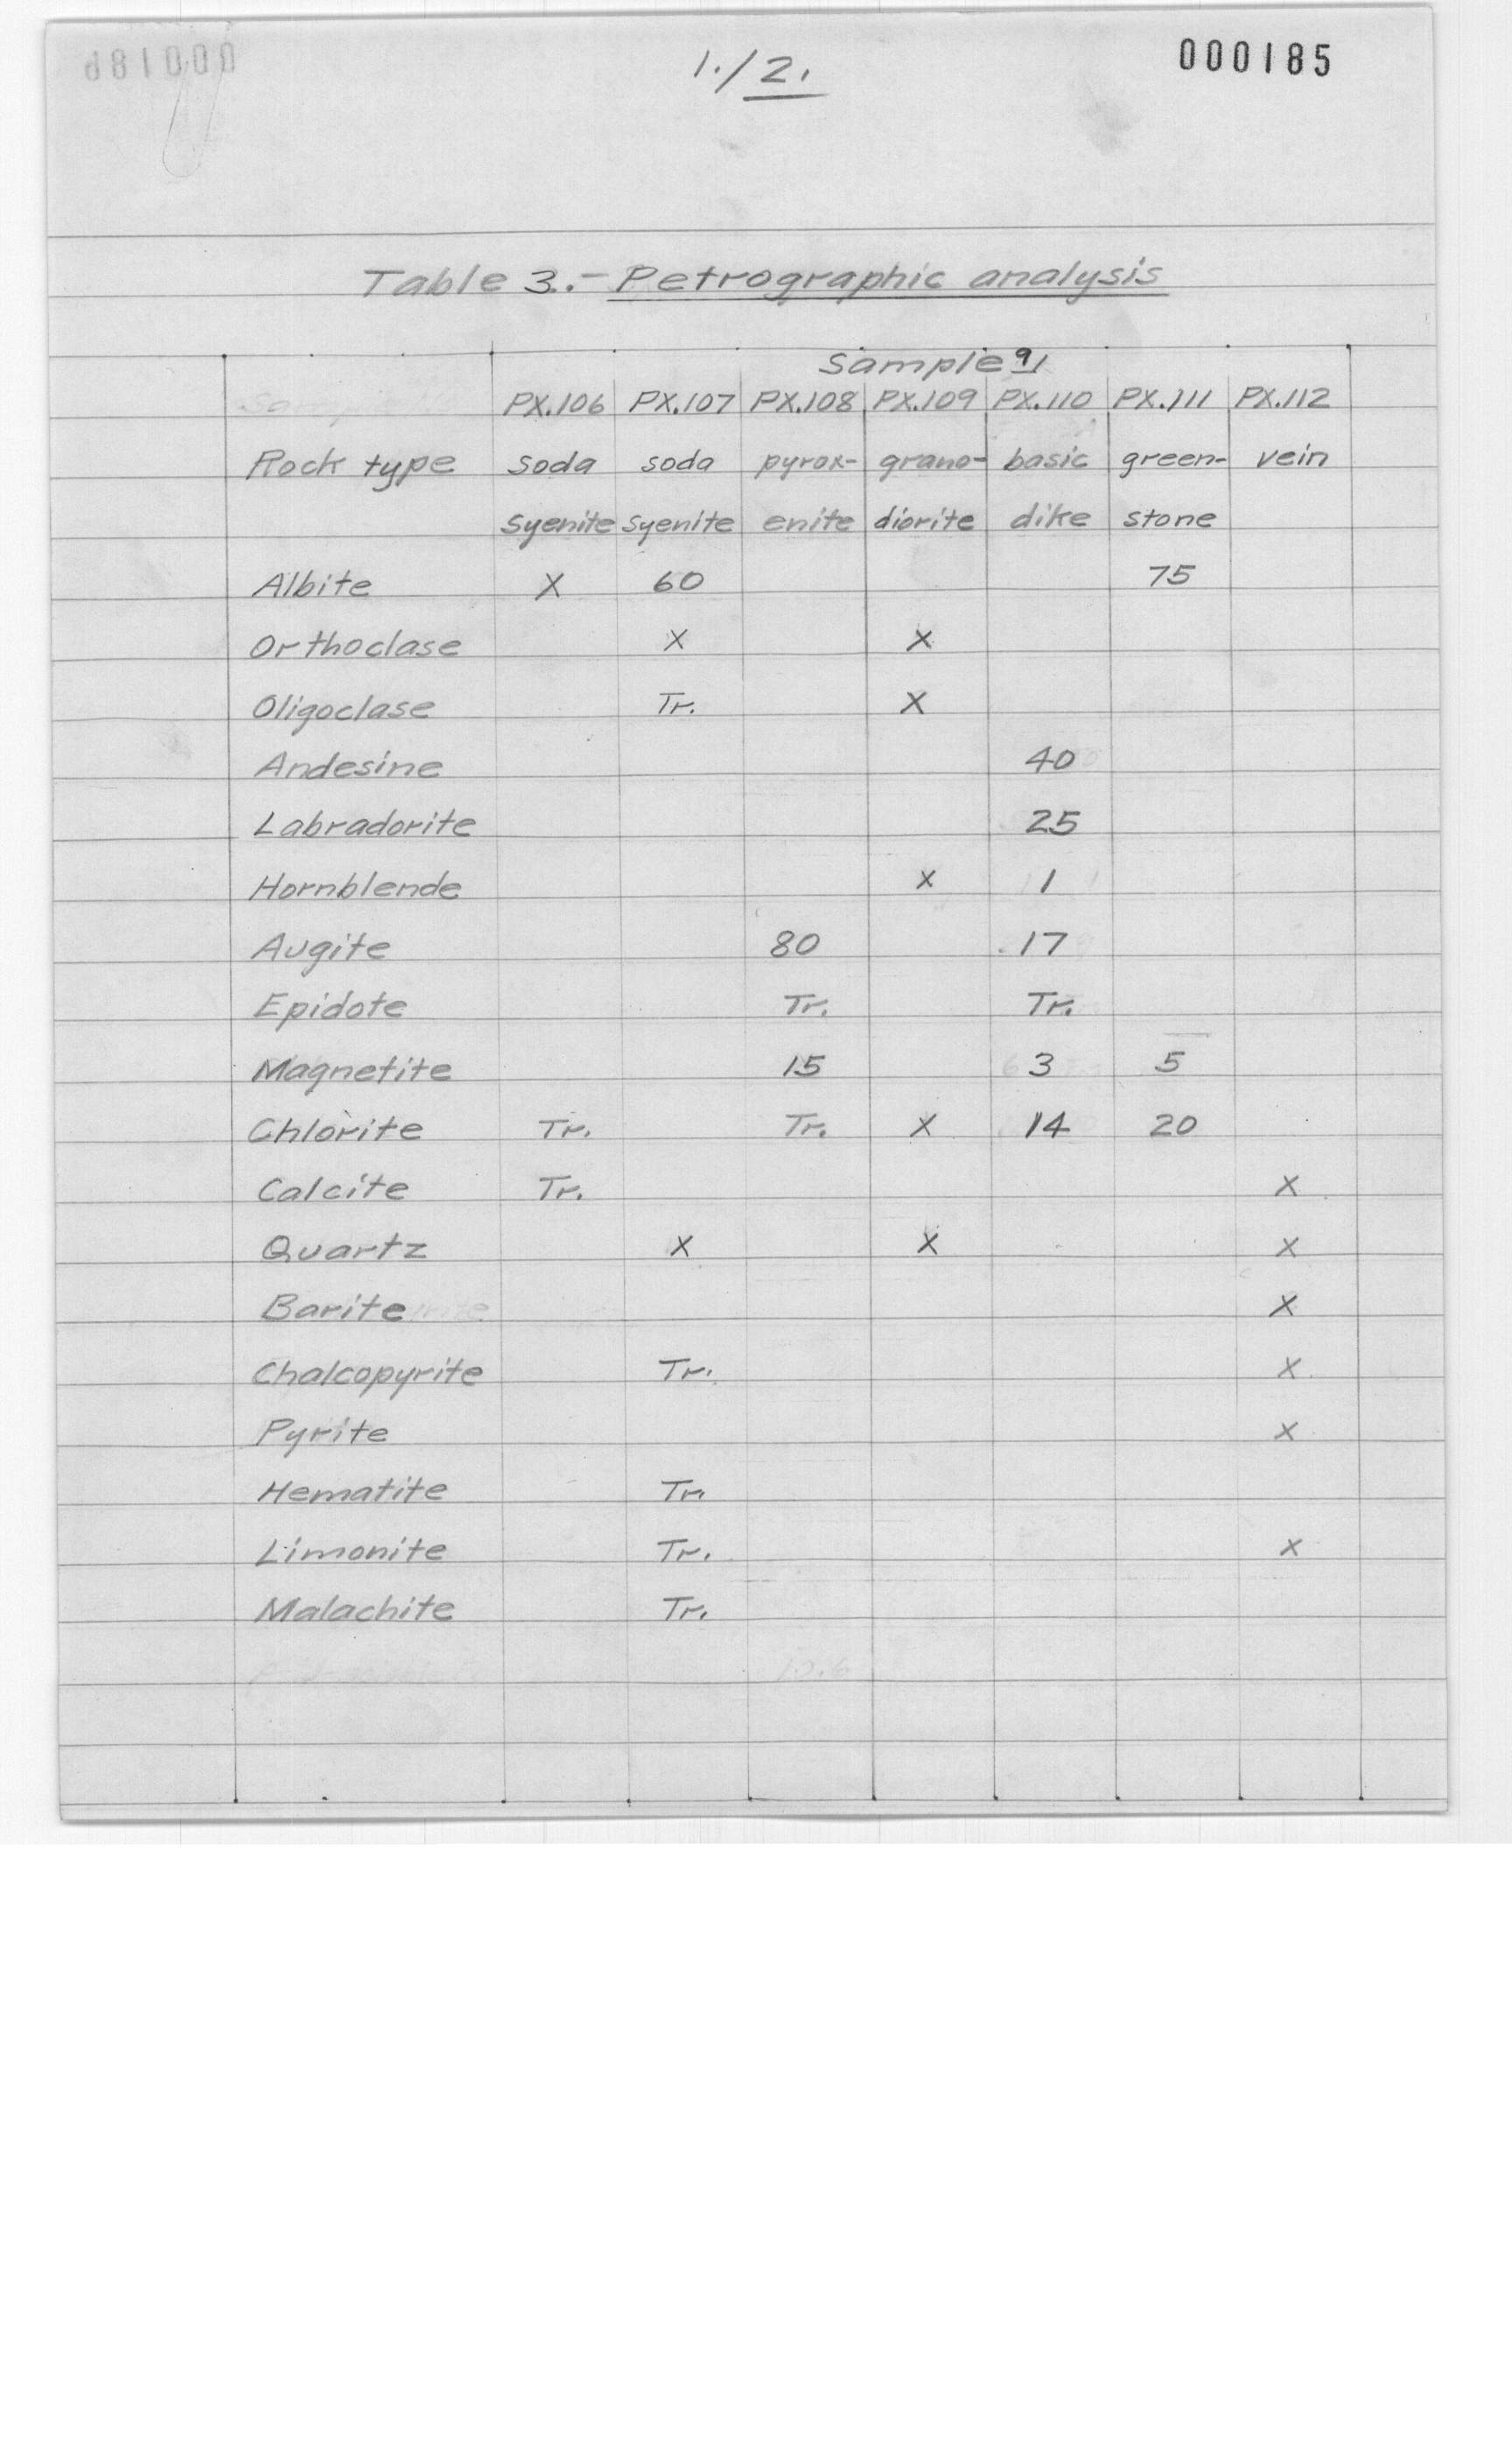 1./2.
000185
Table 3.- Petrographic analysis
Sample a/
PX.106 PX.107 PX.108 PX.109 PX.110 PX.111 PX.112
Rock type soda soda pyrox- grano- basic green- vein
syenite syenite enite diorite dike stone
Albite X 60 75
Orthoclase X X
Oligoclase Tr. X
Andesine 40
Labradorite 25
Hornblende X 1
Augite 80 17
Epidote Tr. Tr.
Magnetite 15 3 5
Chlorite Tr. Tr. X 14 20
Calcite Tr. X
Quartz X X X
Barite X
Chalcopyrite Tr. X
Pyrite X
Hematite Tr.
Limonite Tr. X
Malachite Tr.